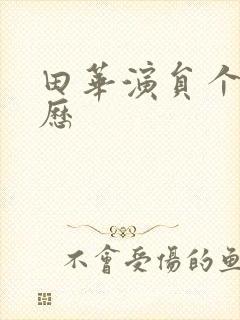 田華演員个
歷
不會受傷的魚